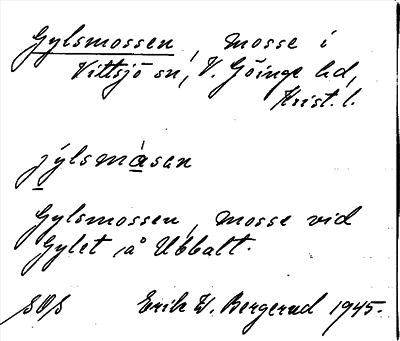 Gylsmossen, mosse i
Vittsjö sn, V. Göinge hd,
Krist. l.
jýlsmàsen
Gylsmossen, mosse vid
Gylet å Ubbalt.
Erik W. Bergerud 1945.